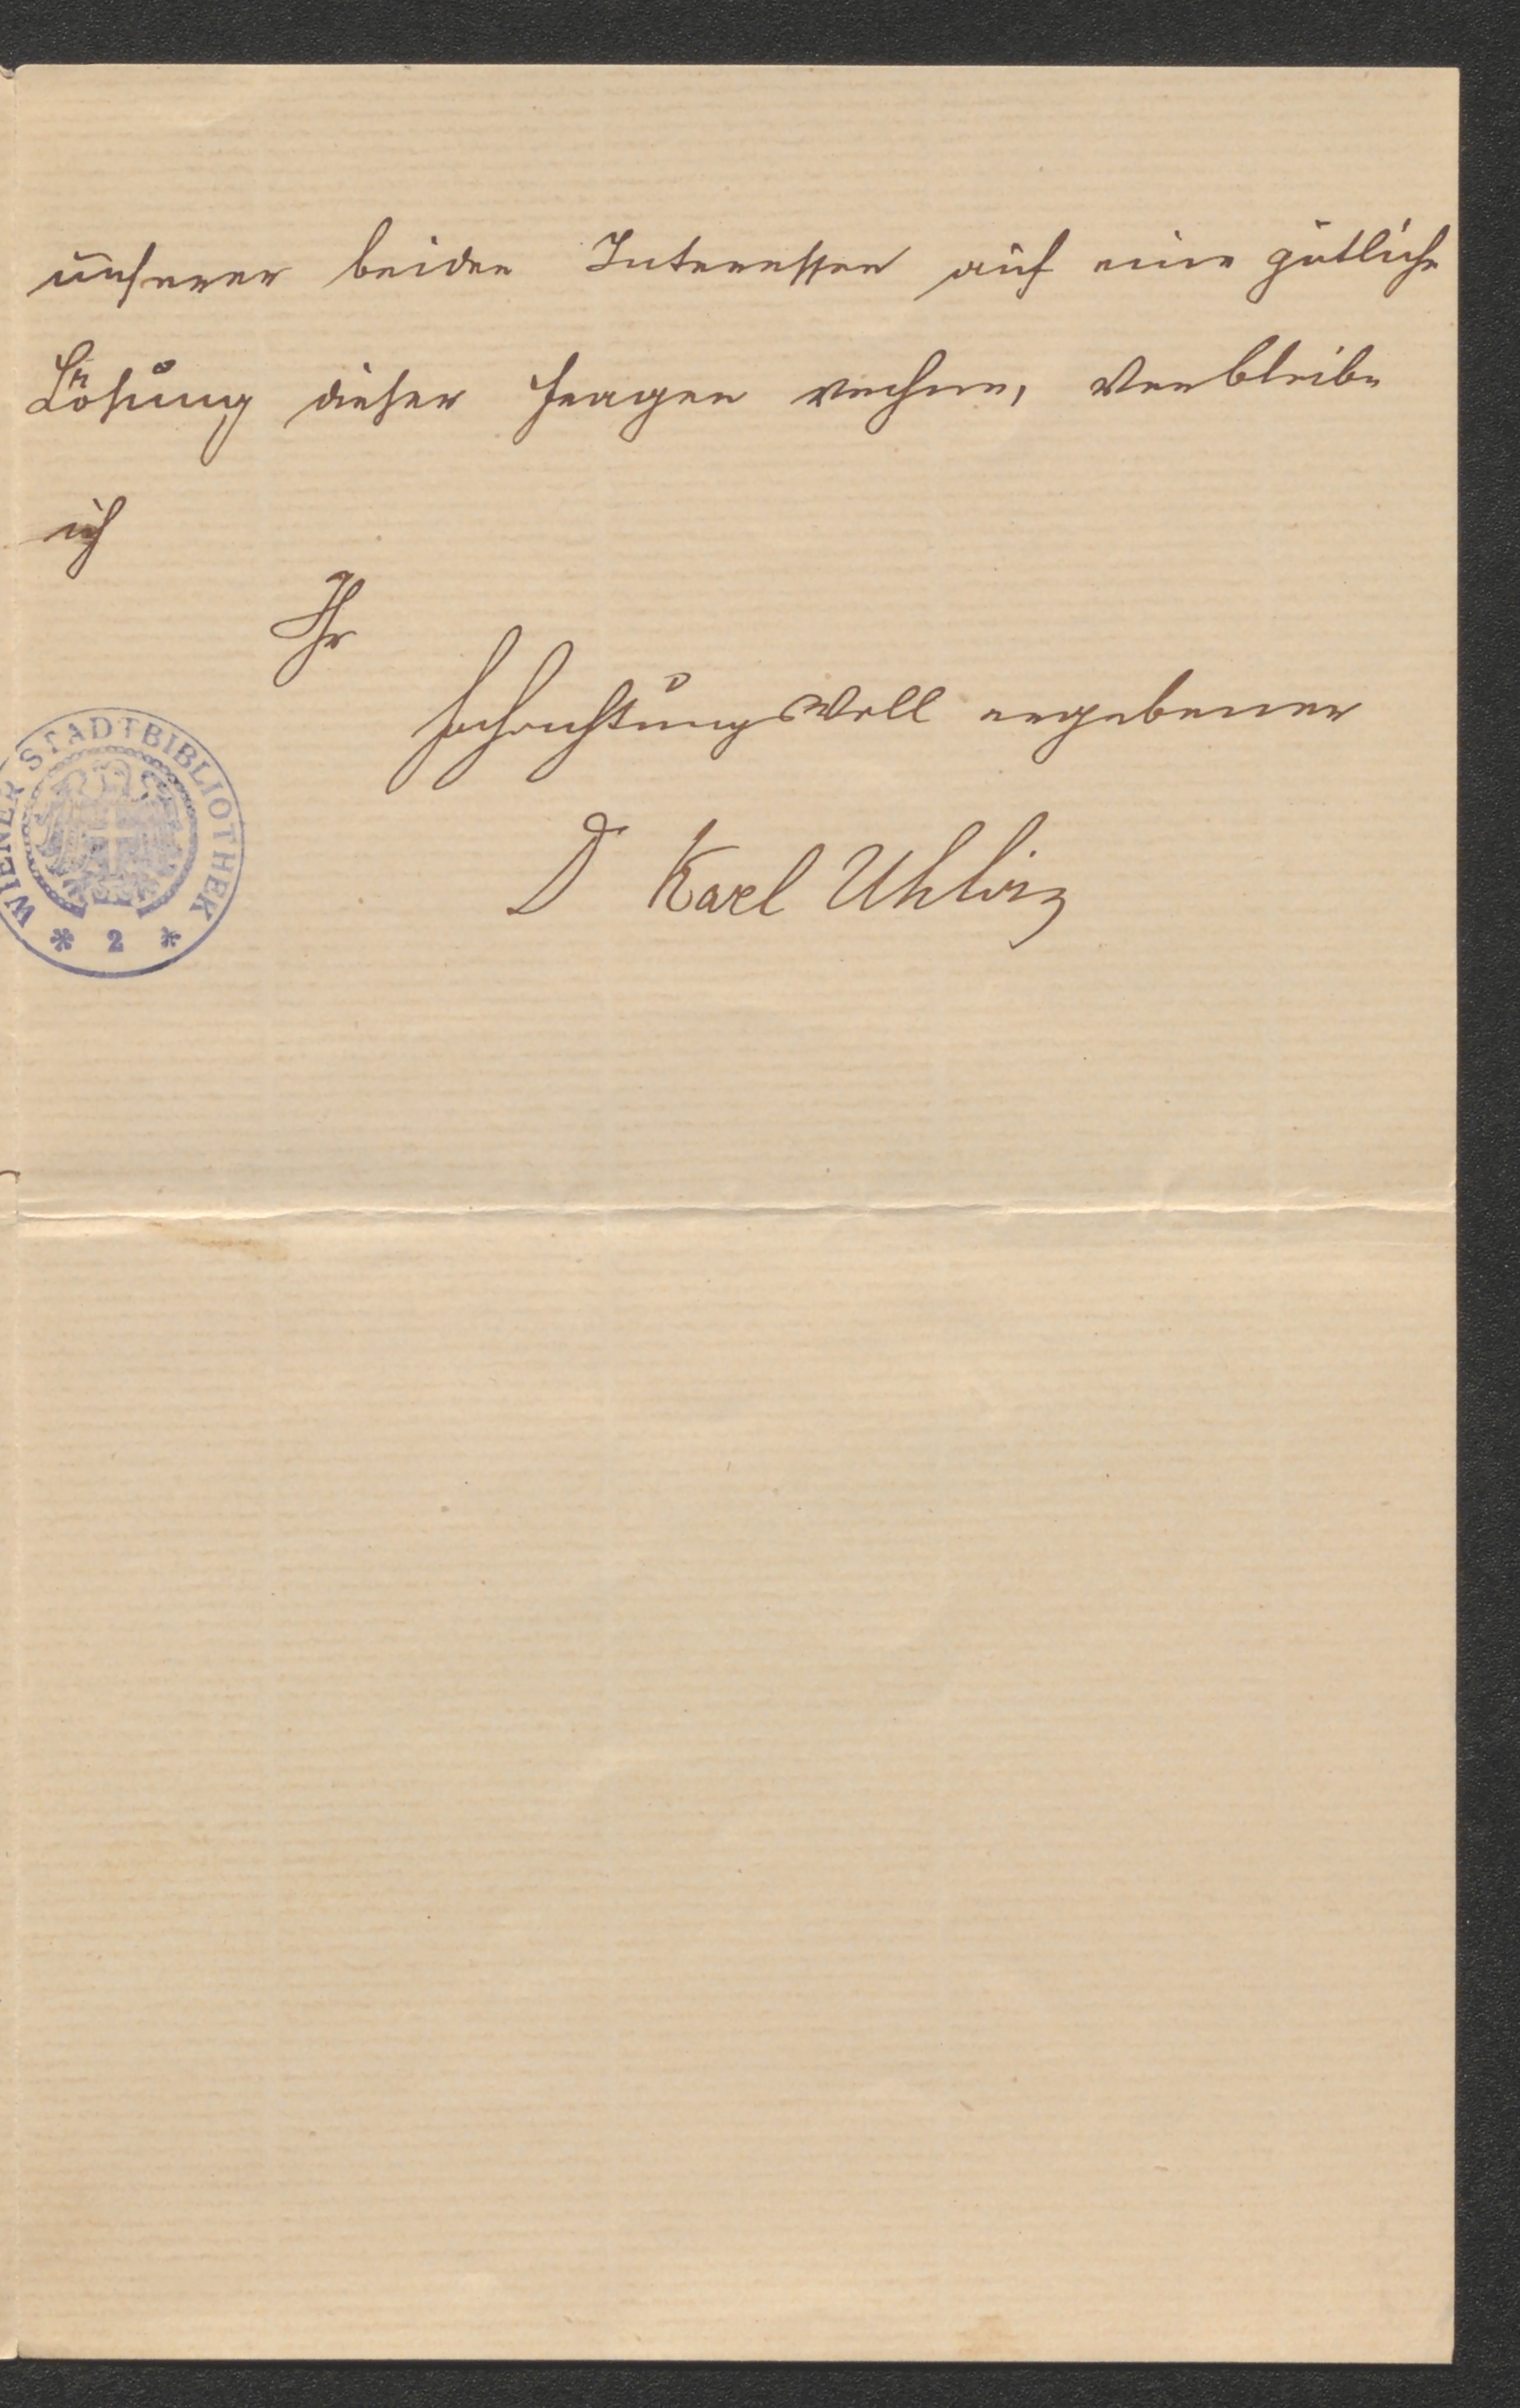 unserer beider Interessen auf eine gütliche
Lösung dieser Fragen rechne, verbleibe
ich
Ihr
hochachtungsvoll ergebener
Dr Karl Uhlirz
WIENER STADTBIBLIOTHEK
* 2 *